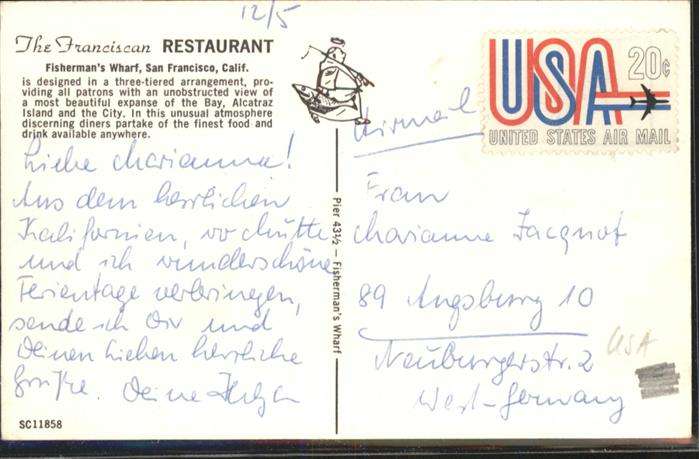 12/5
The Franciscan RESTAURANT
Fisherman's Wharf, San Francisco, Calif.
is designed in a three-tiered arrangement, pro-
viding all patrons with an unobstructed view of
a most beautiful expanse of the Bay, Alcatraz
Island and the City. In this unusual atmosphere
discerning diners partake of the finest food and
drink available anywhere.
Liebe Marianne!
Aus dem herrlichen
Kalifornien, wo
und ich wunderschöne
Ferientage verbringen,
sende ich Dir und
Deinen Lieben herrliche
Grüße. Deine
SC11858
Pier 43½ – Fisherman's Wharf
USA 20c
UNITED STATES AIR MAIL
Airmail
Frau
Marianne Jacquot
89 Augsburg 10
Neuburgerstr. 2
West-Germany
USA